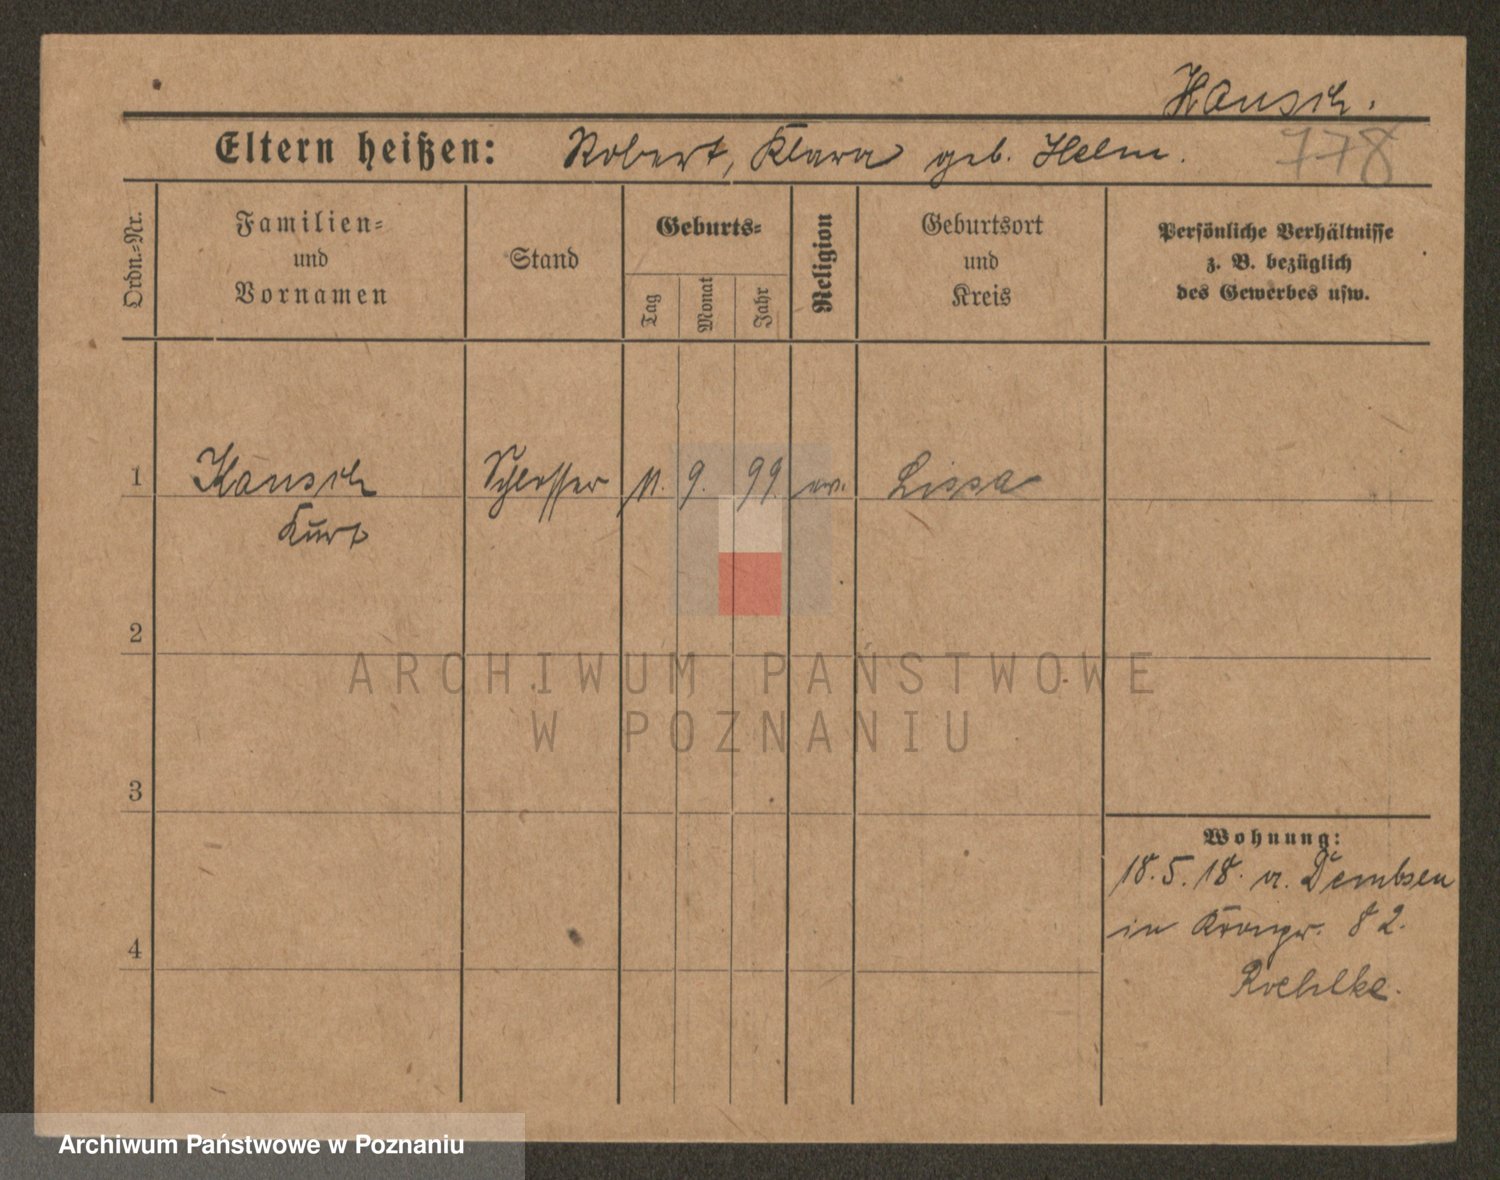 Hänsch.
Eltern heißen: Robert, Klara geb. Helm.
778
Ordn.-Nr.
Familien-
und
Vornamen
Stand
Geburts-
Tag
Monat
Jahr
Religion
Geburtsort
und
Kreis
Persönliche Verhältnisse
z. B. bezüglich
des Gewerbes usw.
1 Schlosser 11. 9. 99 ev. Lissa
Kurt
2
ARCHIWUM PAŃSTWOWE
W POZNANIU
3
Wohnung:
18.5.18. a. Dembsen
in Kronpr. 82.
4
Roehlke.
Archiwum Państwowe w Poznaniu